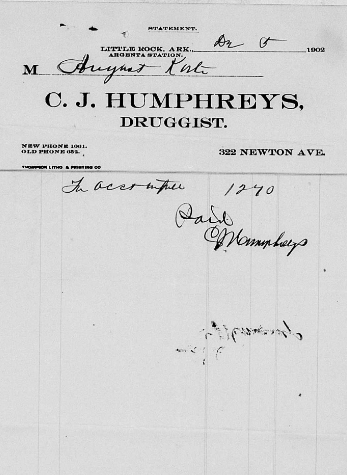 STATEMENT.
LITTLE ROCK, ARK., Dec 5 1902
ARGENTA STATION.
M August
C. J. HUMPHREYS,
DRUGGIST.
NEW PHONE 1001.
OLD PHONE 652.
322 NEWTON AVE.
THOMPSON LITHO. & PRINTING CO
To acct 1240
Paid
CJ Humphreys